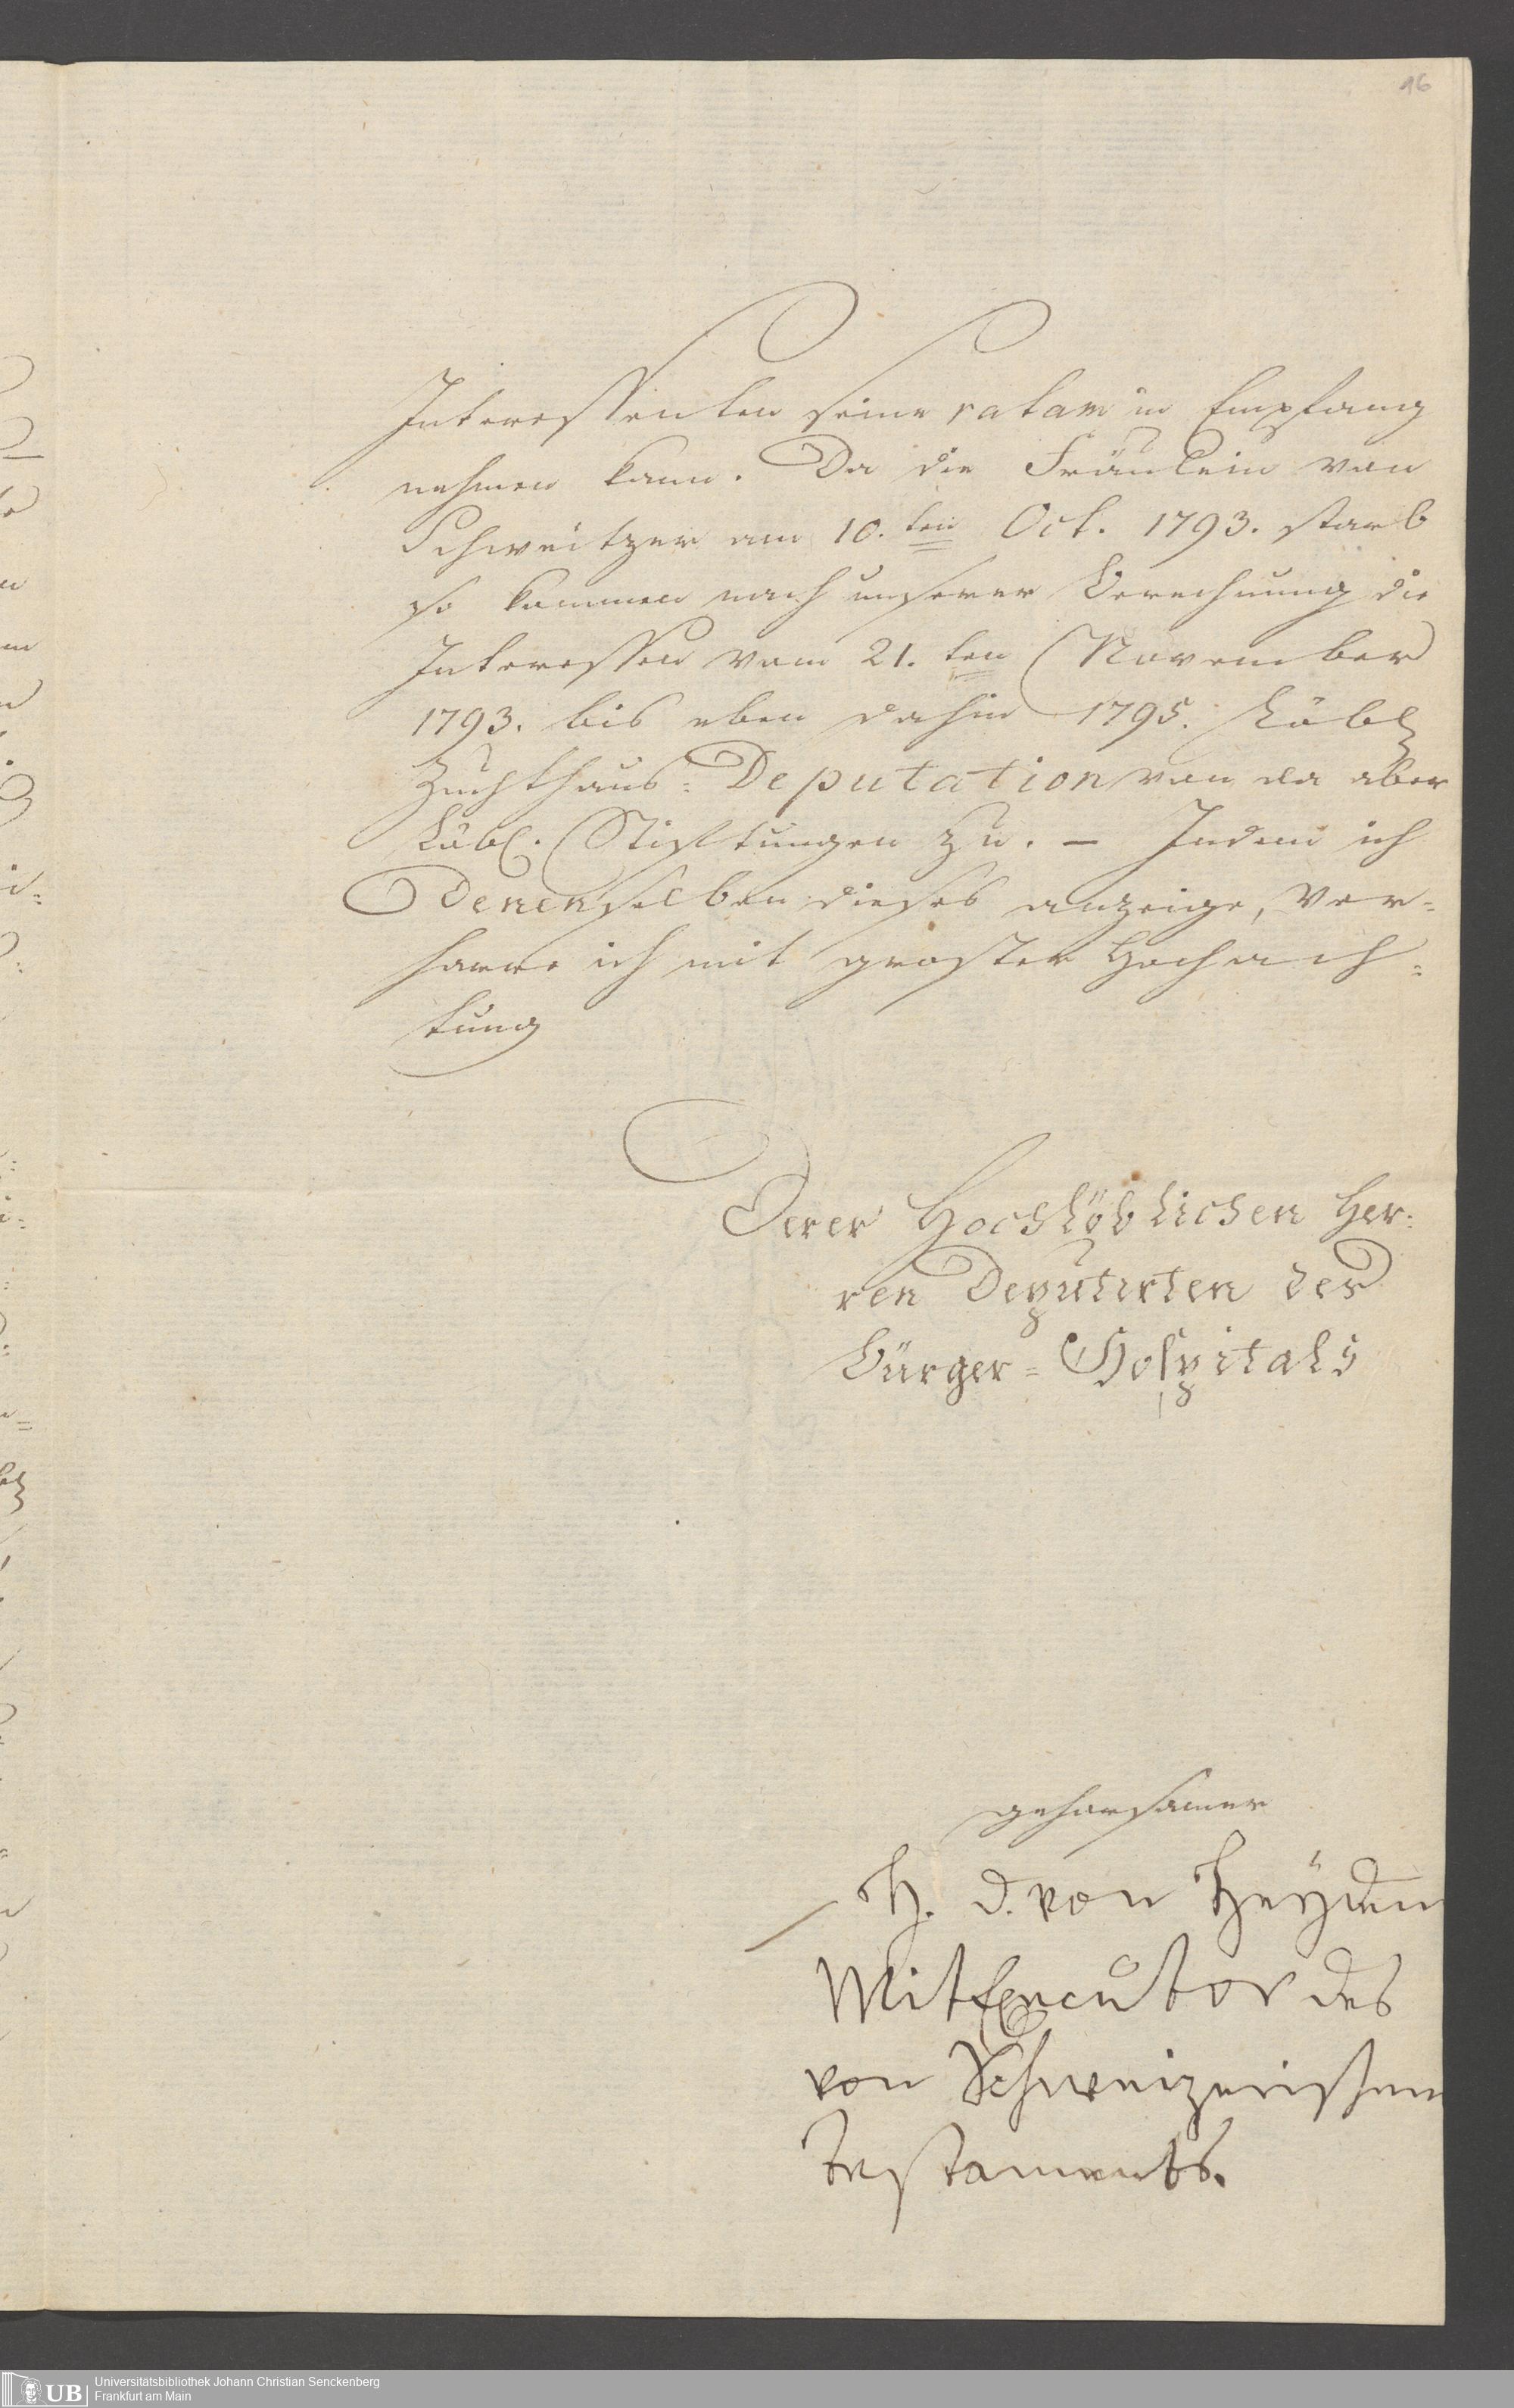 16
Interessenten seine ratam in Empfang
nehmen kann. Da die Fräulein von
Schweitzer am 10.ten Oct. 1793. starb
so kommen nach unserer Berechnung die
Interessen vom 21.ten November
1793. bis eben dahin 1795. Löbl
Zuchthaus-Deputation von da aber
Löbl. Stiftungen zu. – Indem ich
Denenselben dieses anzeige, ver-
harre ich mit groster Hochach-
tung
Derer Hochlöblichen Her-
ren Deputirten des
Bürger-Hospitals
gehorsamer
H. d. von Heyden
MitExecutor des
von Schweizerischen
Testaments.
UB
Universitätsbibliothek Johann Christian Senckenberg
Frankfurt am Main